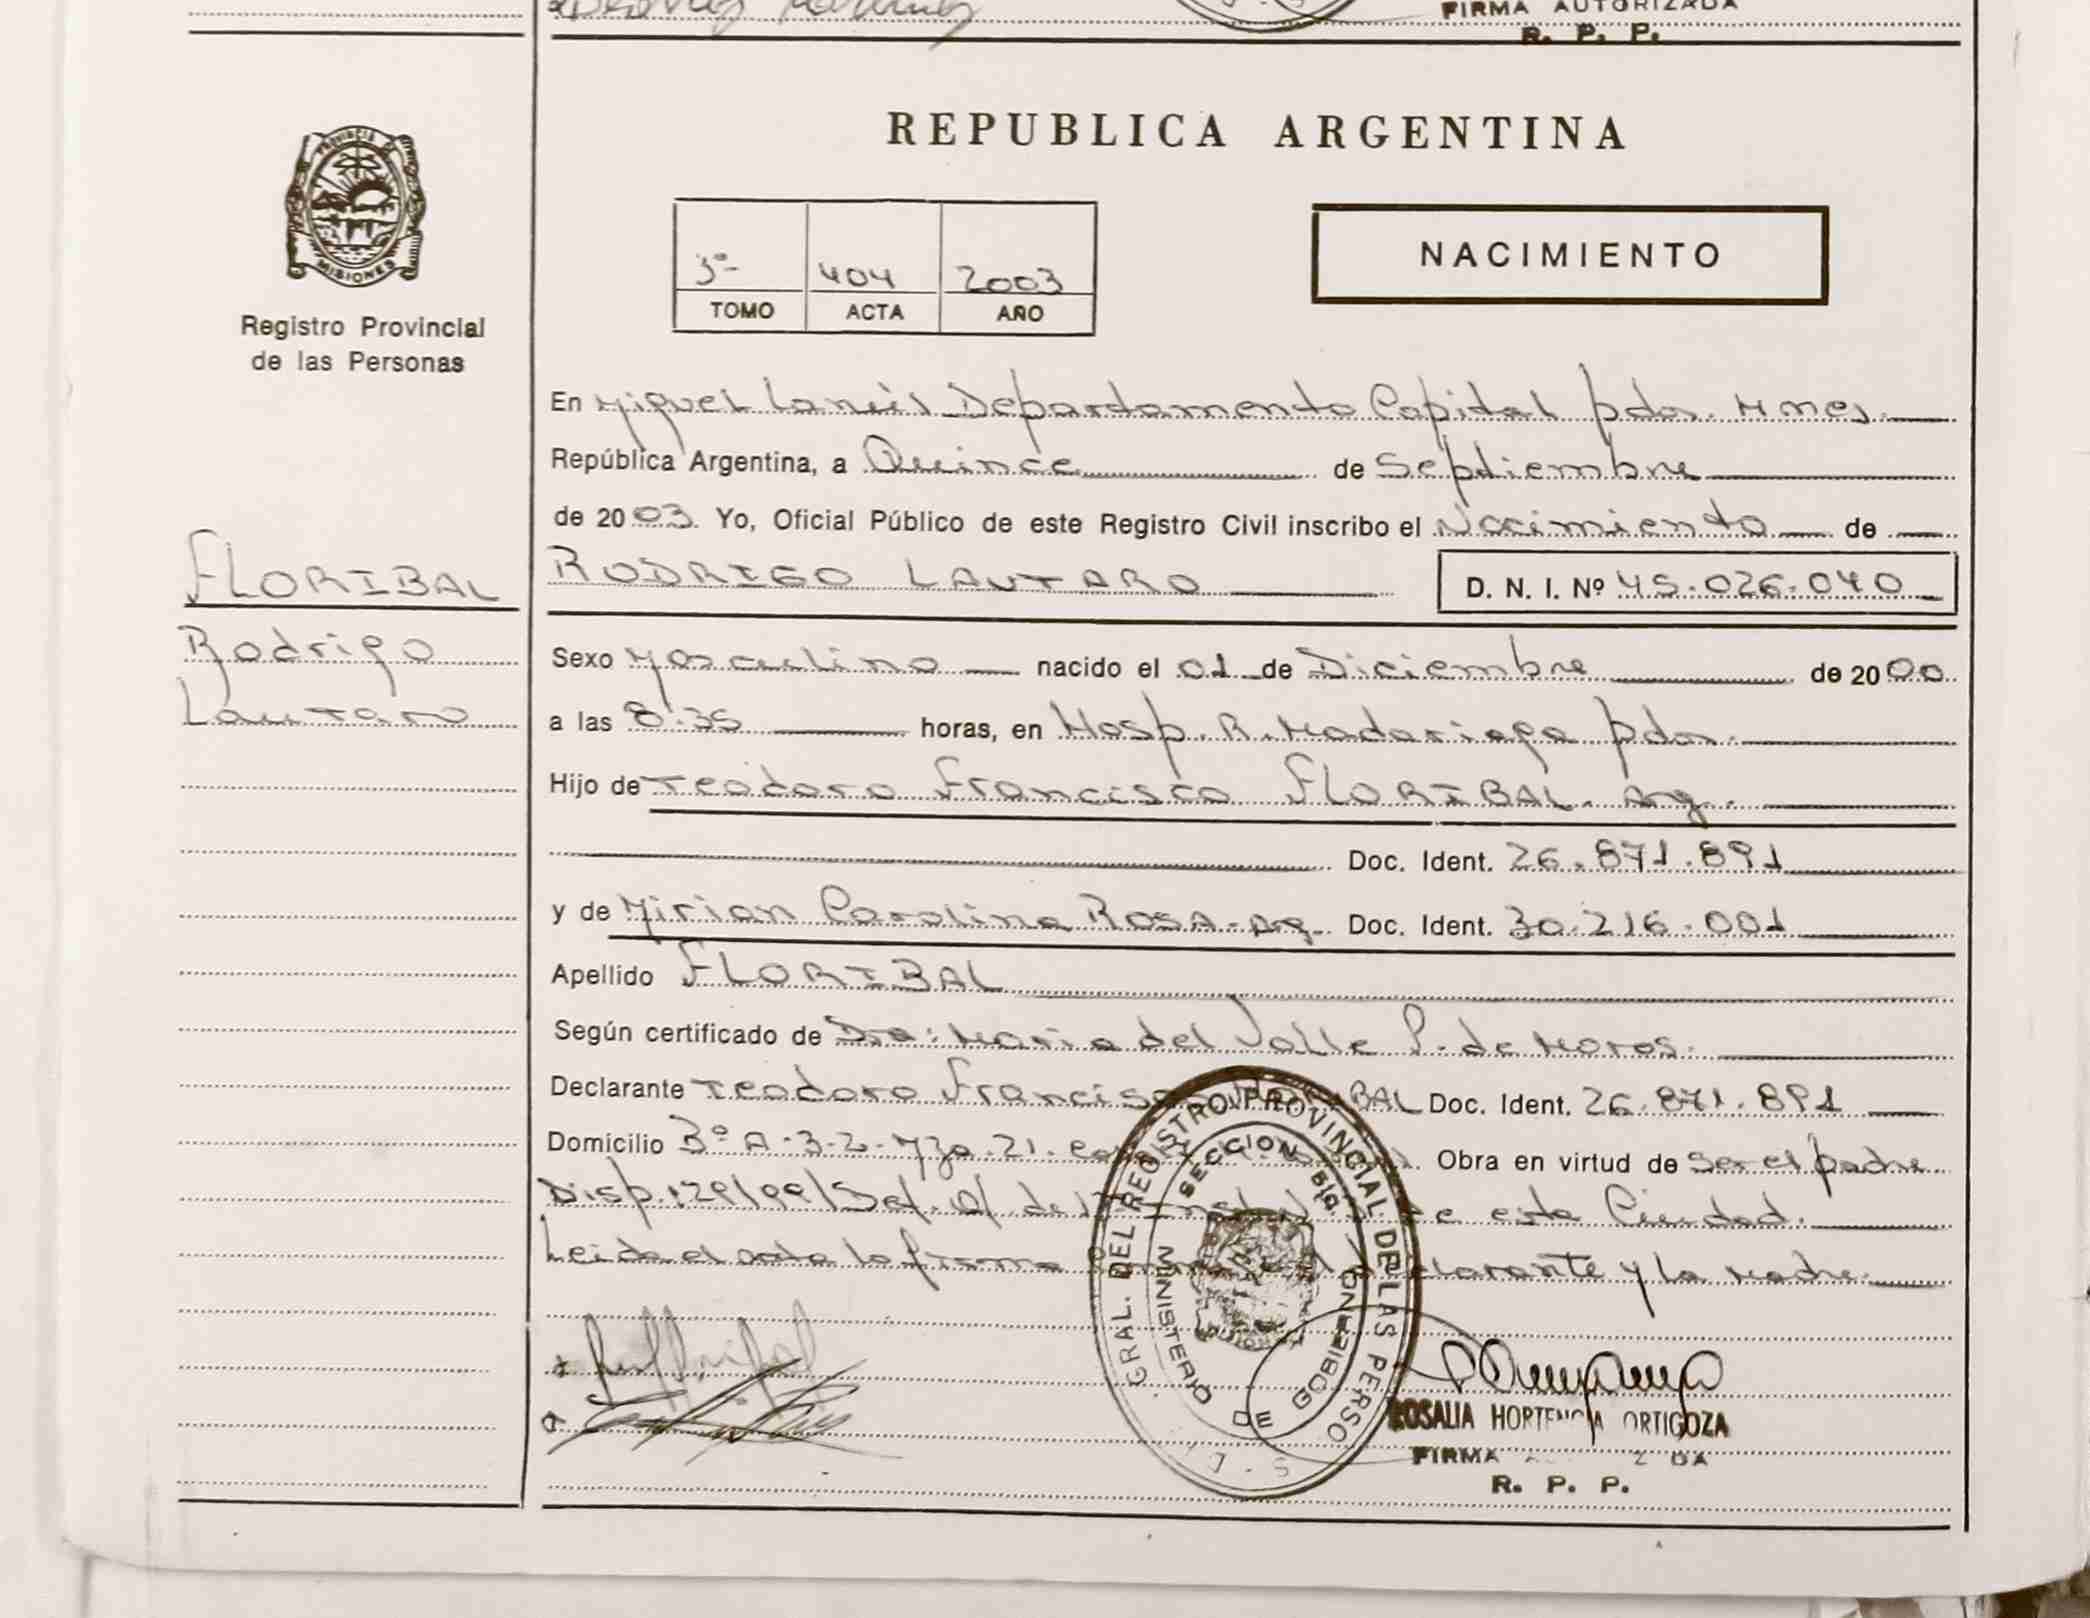 FIRMA AUTORIZADA
R. P. P.
PROVINCIA DE
MISIONES
Registro Provincial
de las Personas
FLORIBAL
Rodrigo
Lautaro
REPUBLICA ARGENTINA
3º- 404 2003
TOMO ACTA AÑO
NACIMIENTO
En Miguel Lanús Departamento Capital pdas. Mnes.
República Argentina, a Quince de Septiembre
de 2003. Yo, Oficial Público de este Registro Civil inscribo el Nacimiento de
RODRIGO LAUTARO D. N. I. Nº 45.026.040
Sexo Masculino nacido el 01 de Diciembre de 2000
a las 8:35 horas, en Hosp. R. Madariaga pdas.
Hijo de Teodoro Francisco FLORIBAL. Arg.
Doc. Ident. 26.871.891
y de Mirian Carolina ROSA - Arg. Doc. Ident. 30.216.001
Apellido FLORIBAL
Según certificado de Dra: Maria del Valle P. de Moros.
Declarante Teodoro Francisco FLORIBAL Doc. Ident. 26.871.891
Domicilio 3º A-3-2-Mza.21. Obra en virtud de ser el padre
Disp. 129/99/Def. Of. de esta Ciudad.
Leida el acta la firma declarante y la Madre
GRAL. DEL REGISTRO PROVINCIAL DE LAS PERSO
SECCION
MINISTERIO DE GOBIERNO
ROSALIA HORTENCIA ORTIGOZA
FIRMA
R. P. P.